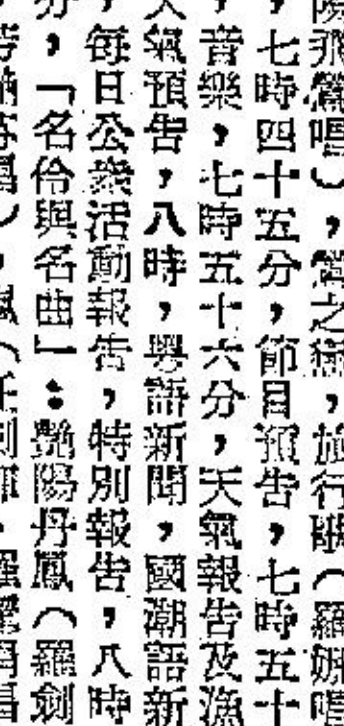 陽飛鶯唱），鶯之戀，旅行歌（羅娜唱
，七時四十五分，節目預告，七時五十
，音樂，七時五十六分，天氣報告及漁
天氣預告，八時，粵語新聞，國潮語新
，每日公衆活動報告，特別報告，八時
分，「名伶與名曲」：艷陽丹鳳（羅劍
芳艷芬唱），鳳（任劍輝、羅麗娟唱